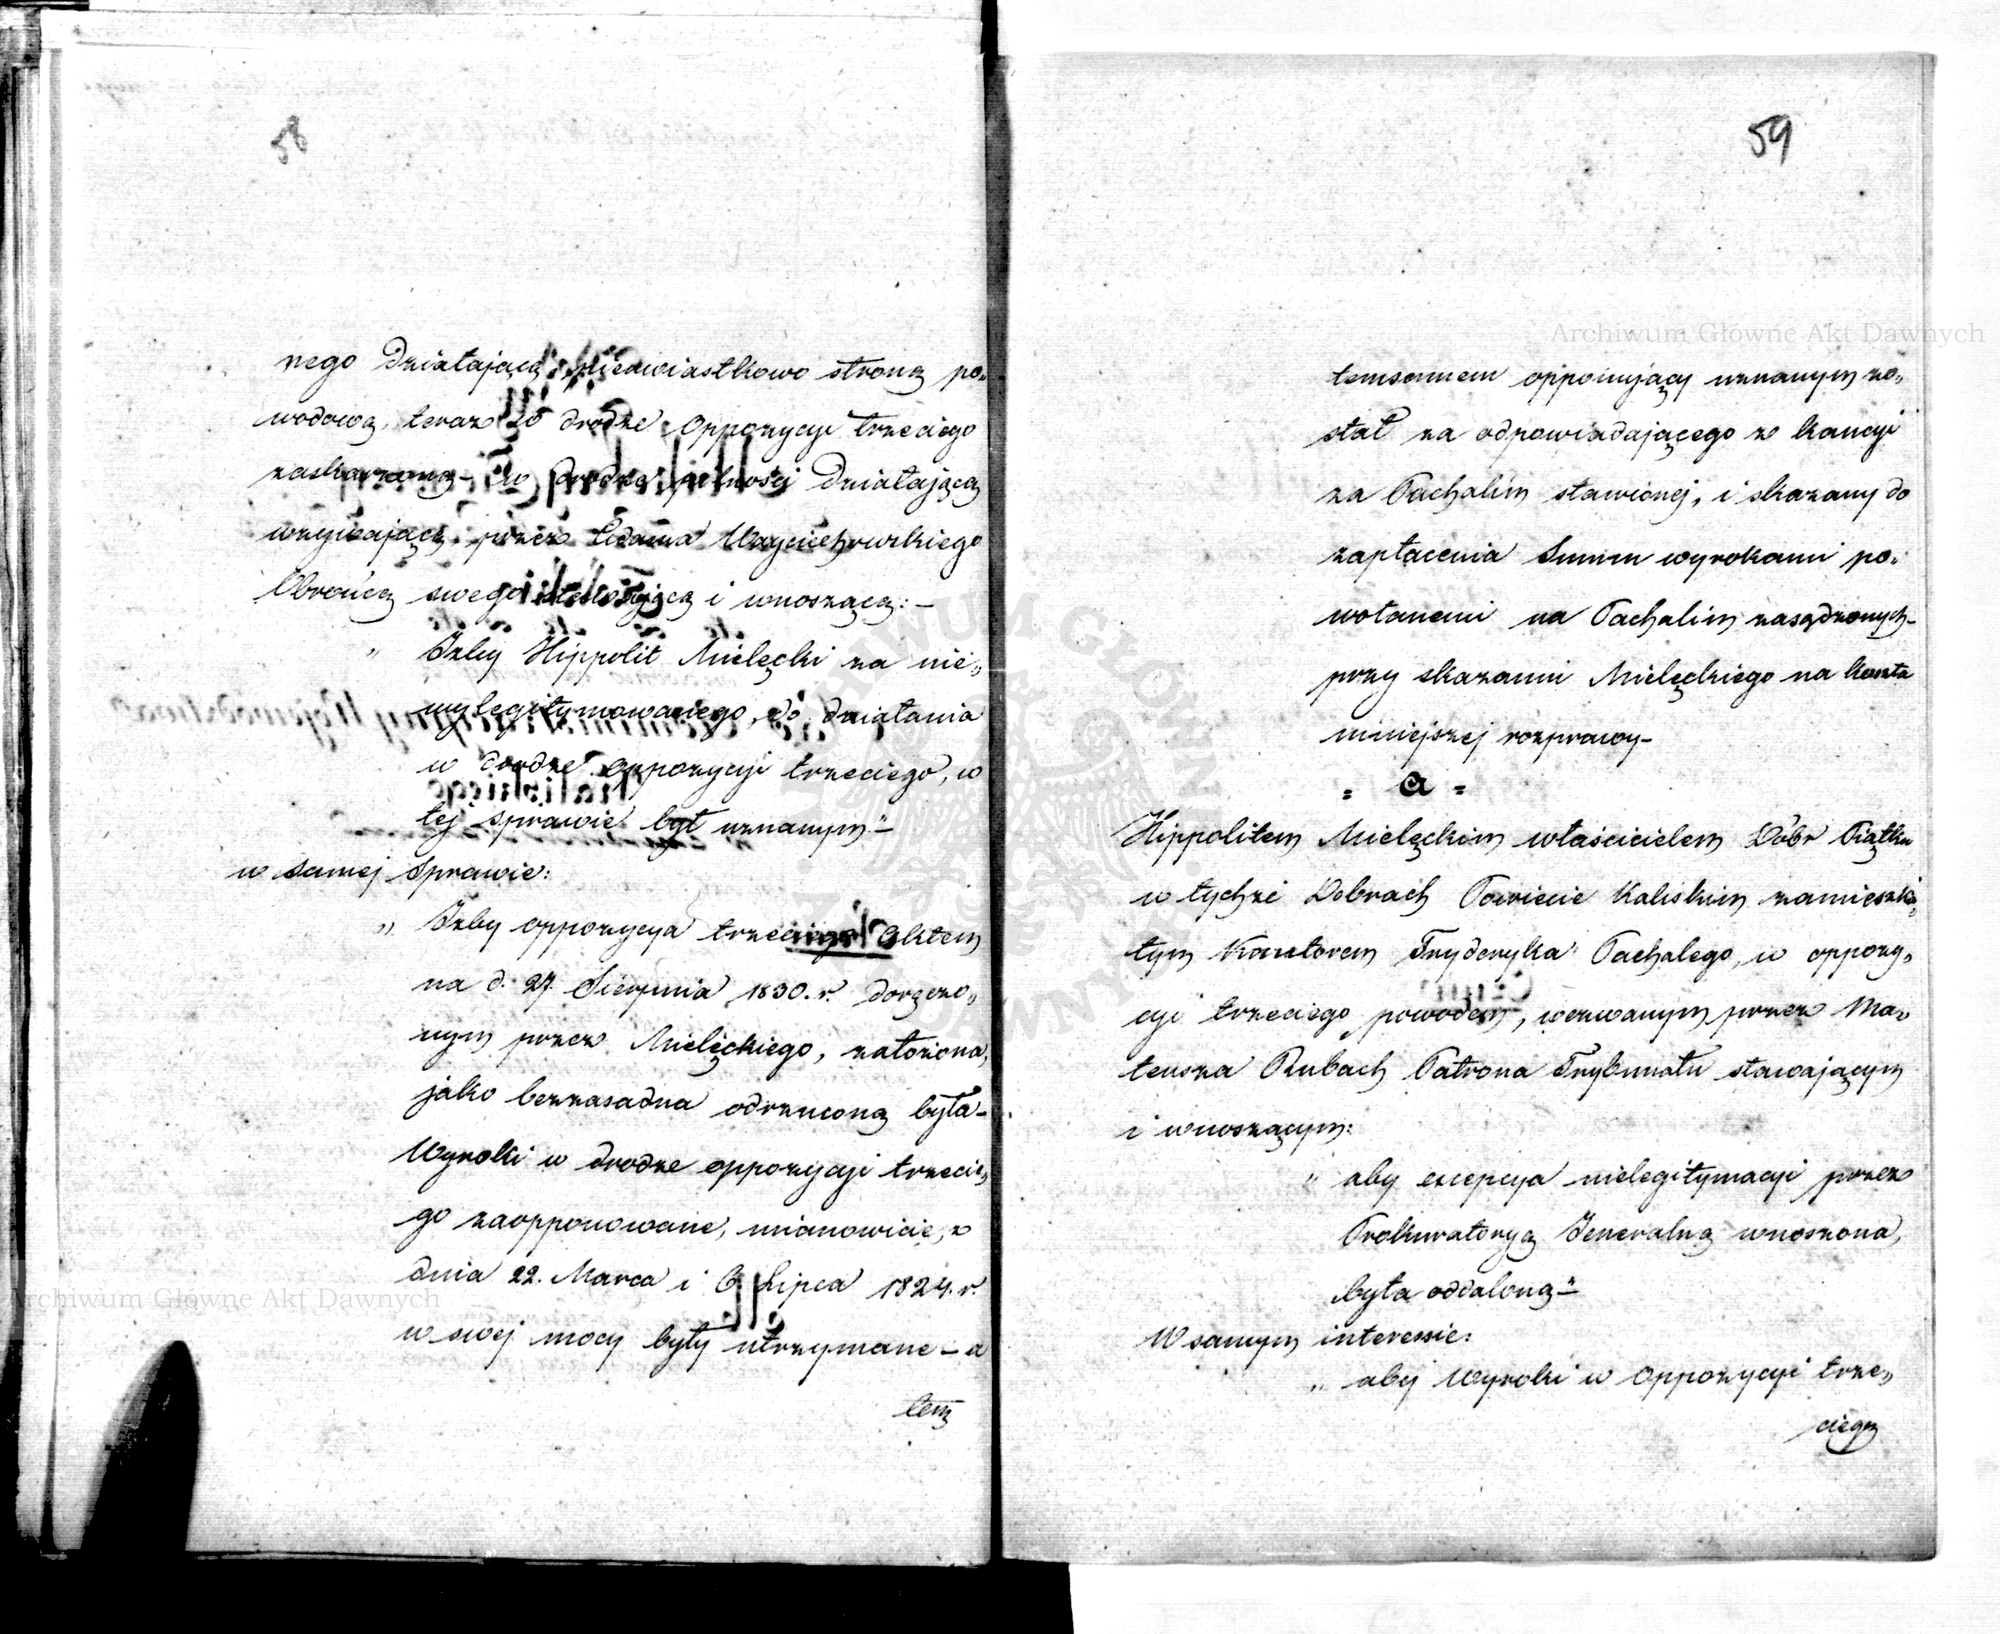 58
nego działającą, niedawiastkowo stroną po„
wodową, teraz w drodze oppozycyi trzeciego
zaskarżoną – w drodze pilności działającą
wzywającą, przez Adama Woyciechowskiego
Obrońcę swego stawającą i wnoszącą: –
„ Iżby Hippolit Mielęcki za nie„
wylegitymowanego, do działania
w drodze oppozycyi trzeciego, w
tej sprawie był uznanym" –
w samej sprawie:
„ Iżby oppozycya trzeciego Aktem
na d. 27. Sierpnia 1830. r. doręczo„
nym przez Mielęckiego, założona,
jako bezzasadna odrzuconą była –
Wyroki w drodze oppozycyi trzecie„
go zaopponowane, mianowicie, z
dnia 22. Marca i 6 Lipca 1824. r.
w swej mocy były utrzymane – a
tem
59
temsamem opponujący uznanym zo„
stał za odpowiadającego z kaucyi
za Pachalim stawionej, i skazany do
zapłacenia Summ wyrokami po„
wołanemi na Pachalim zasądzonych –
przy skazaniu Mielęckiego na koszta
niniejszej rozprawy –
= a =
Hippolitem Mielęckim właścicielem Dóbr Piątku
w tychże Dobrach Powiecie Kaliskim zamieszka„
łym Kautorem Fryderyka Pachalego, w oppozy„
cyi trzeciego powodem, wezwanym przez Ma„
teusza Rubach Patrona Trybunału stawającym
i wnoszącym:
„ aby excepcya nielegitymacyi przez
Prokuratoryą Jeneralną wnoszona,
była oddaloną" –
W samym interessie:
„ aby Wyroki w Oppozycyi trze„
ciego
Archiwum Główne Akt Dawnych
Archiwum Główne Akt Dawnych